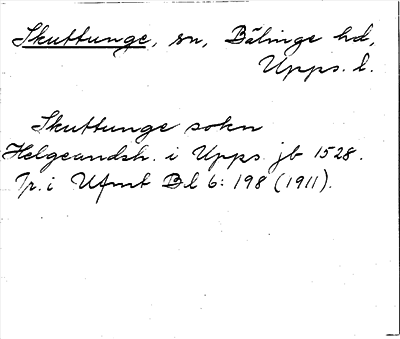 Skuttunge, sn, Bälinge hd,
Upps. l.
Skuttunge sokn
Helgeandsh. i Upps. jb 1528.
Tr. i Ufmt Bl 6: 198 (1911).